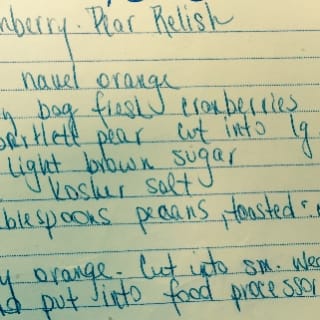 nberry. Pear Relish
navel orange
bag fresh cranberries
bartlett pear cut into lg
light brown sugar
Kosher salt
blespoons pecans, toasted
orange. Cut into sm. wed
nd put into food processo